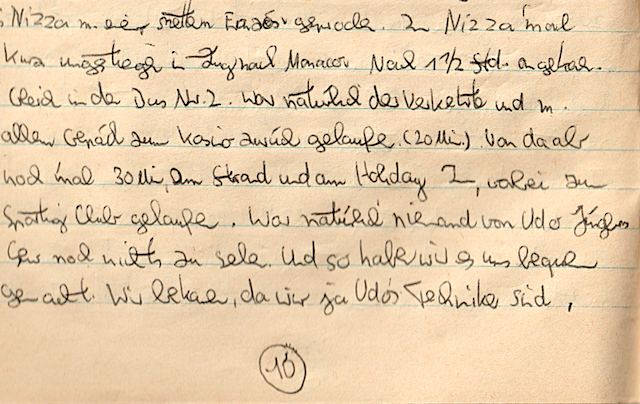 Nizza m. ein netten Franzosen gepennt. In Nizza mal
Kurz umgestiegen in Zug nach Monaco. Nach 1 1/2 Std. angekommen.
Gleich in den Bus Nr. 2. War natürlich der Verkehrte und m.
allem Gepäck zum Kasino zurück gelaufen. (20 Min.). Von da ab
noch mal 30 Min. am Strand und am Holiday I., vorbei zum
Sporting Club gelaufen. War natürlich niemand von Udo Jürgens
Crew noch nichts zu sehen. Und so haben wir es uns bequem
gemacht. Wir bekamen, da wir ja Udos Techniker sind,
10